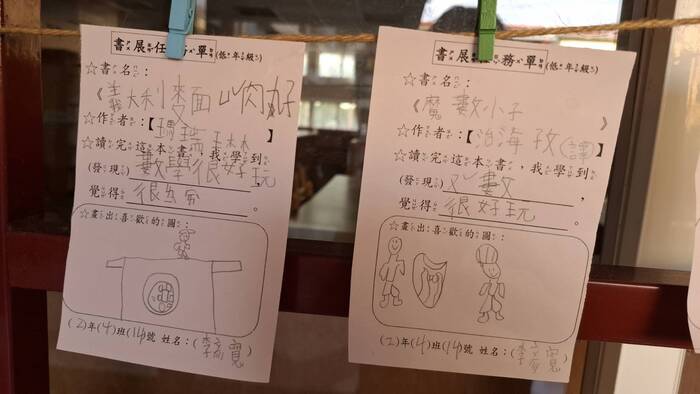 書展任務單(低年級)
☆書名:
《 大利麥面 肉
☆作者:【 】
☆讀完這本書,我學到
(發現)數學很好玩
覺得很 。
☆畫出喜歡的圖:
(2)年(4)班(14)號 姓名:(李 寬)
書展 務單(低年級)
☆書名:
《魔數小子》
☆作者:【 海 (譯)】
☆讀完這本書,我學到
(發現) 數,
覺得很好玩。
☆畫出喜歡的圖:
(2)年(4)班(14)號 姓名:(李 寬)